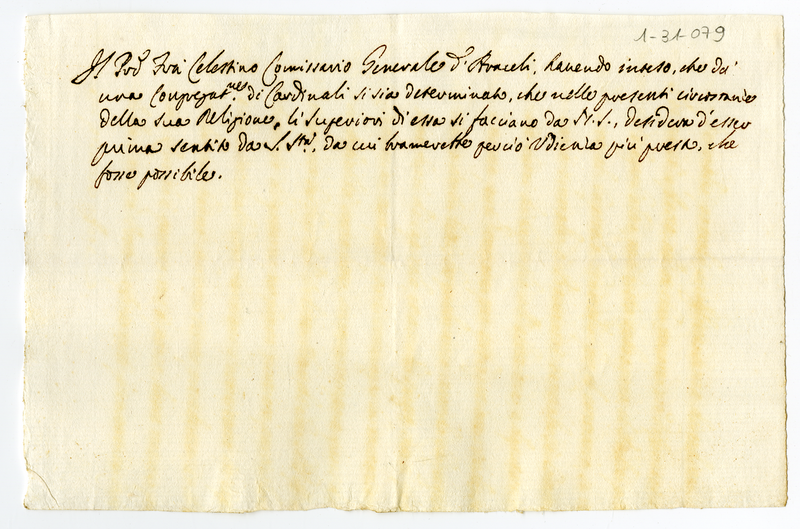 1-31-079
Il P̃re Frà Celestino Comissario Generale d'Araceli, havendo inteso, che da'
una Congregat.ne di Cardinali si sia determinato, che nelle presenti circostanze
della sua Religione, li Superiori di essa si facciano da N. S., desidera d'esser
prima sentito da S. Stà, da cui bramerebbe perciò Udienza più presto, che
fosse possibile.